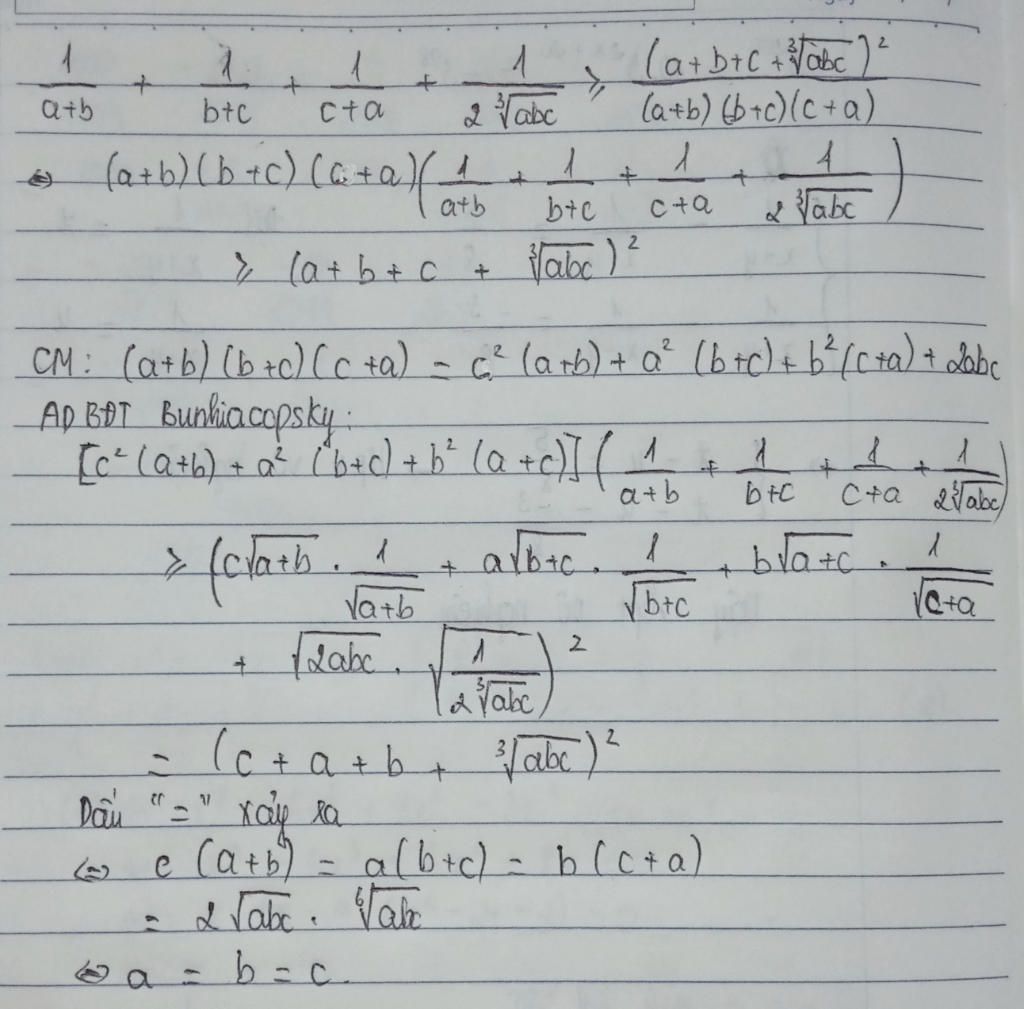 1/(a+b) + 1/(b+c) + 1/(c+a) + 1/(2∛abc) ⩾ (a+b+c+∛abc)²/((a+b)(b+c)(c+a))
⇔ (a+b)(b+c)(c+a)(1/(a+b) + 1/(b+c) + 1/(c+a) + 1/(2∛abc))
⩾ (a+b+c + ∛abc)²
CM: (a+b)(b+c)(c+a) = c²(a+b) + a²(b+c) + b²(c+a) + 2abc
AD BĐT Bunhiacopsky:
[c²(a+b) + a²(b+c) + b²(a+c)](1/(a+b) + 1/(b+c) + 1/(c+a) + 1/(2∛abc))
⩾ (c√(a+b) . 1/√(a+b) + a√(b+c) . 1/√(b+c) + b√(a+c) . 1/√(c+a)
+ √(2abc) . √(1/(2∛abc)))²
= (c + a + b + ∛abc)²
Dấu "=" xảy ra
⇔ c(a+b) = a(b+c) = b(c+a)
= 2√abc . ⁶√abc
⇔ a = b = c.